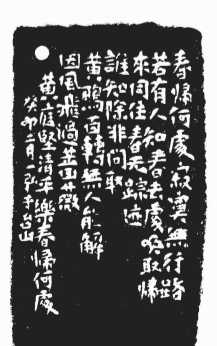 春歸何處寂寞無行路
若有人知春去處喚取歸
來同住春无踪迹
誰知除非問取
黃鸝百轉無人能解
因風飛過薔薇
黃庭堅清平樂春歸何處
癸卯月